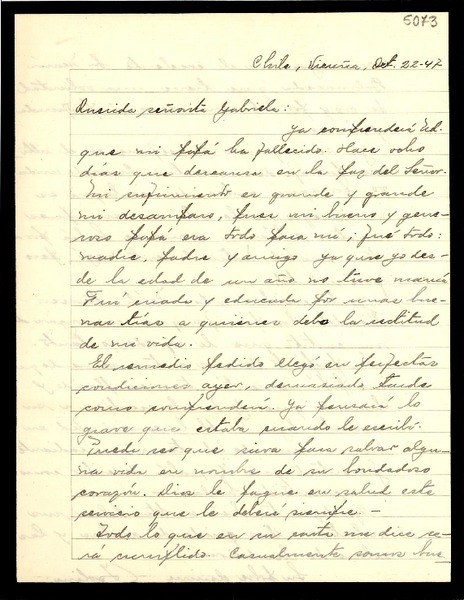 5073
Chile, Vicuña, Oct. 22-47
Querida señorita Gabriela:
Ya comprenderá Ud.
que mi papá ha fallecido. Hace ocho
días que descansa en la paz del Señor.
Mi sufrimiento es grande y grande
mi desamparo, pues mi bueno y gene-
roso papá era todo para mí; fué todo:
madre, padre y amigo ya que yo des-
de la edad de un año no tuve mamá
Fuí criada y educada por unas bue-
nas tías a quienes debo la rectitud
de mi vida.
El remedio pedido llegó en perfectas
condiciones ayer, demasiado tarde
como comprenderá. Ya pensará lo
grave que estaba cuando le escribí.
Puede ser que sirva para salvar algu-
na vida en nombre de su bondadoso
corazón. Dios le pague en salud este
servicio que le deberé siempre. -
Todo lo que en su carta me dice se-
rá cumplido. Casualmente somos bue-